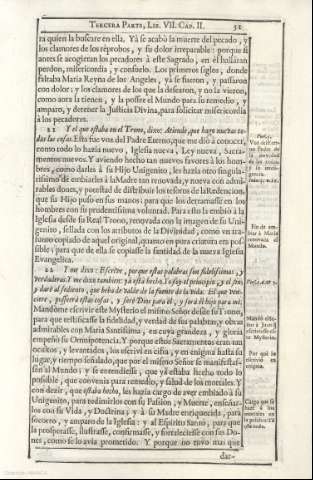 TERCERA PARTE, LIB. VII. CAP. II. 52
ra quien la buscare en ella. Yà se acabò la muerte del pecado, y
los clamores de los rèprobos, y su dolor irreparable: porque si
antes se acogieran los pecadores à este Sagrado, en èl hallaran
perdon, misericordia, y consuelo. Los primeros siglos, donde
faltaba Maria Reyna de los Angeles, yà se fueron, y passaron
con dolor: y los clamores de los que la desearon, y no la vieron,
como aora la tienen, y la possee el Mundo para su remedio, y
amparo, y detener la Justicia Divina, para solicitar misericordia
à los pecadores.
21 Y el que estaba en el Trono, dixo: Atiende, que hago nuevas to-
das las cosas. Esta fue voz del Padre Eterno, que me diò à conocer,
como todo lo hazia nuevo, Iglesia nueva, Ley nueva, Sacra-
mentos nuevos. Y aviendo hecho tan nuevos favores à los hom-
bres, como darles à su Hijo Unigenito, les hazia otro singula-
rissimo de embiarles à la Madre tan renovada, y nueva con admi-
rables dones, y potestad de distribuir los tesoros de la Redencion,
que su Hijo puso en sus manos: para que los derramasse en los
hombres con su prudentissima voluntad. Para esto la embiò à la
Iglesia desde su Real Trono, renovada con la imagen de su Uni-
genito, sellada con los atributos de la Divinidad, como un tra-
sunto copiado de aquel original, quanto en pura criatura era pos-
sible: para que de ella se copiasse la santidad de la nueva Iglesia
Evangelica.
22 Y me dixo: Escrive, porque estas palabras son fidelissimas, y
verdaderas. Y me dixo tambien: yà està hecho. Yo soy el principio, y el fin,
y darè al sediento, que beba de valde de la fuente de la vida. El que ven-
ciere, posseerà estas cosas, y serè Dios para èl, y serà èl hijo para mi.
Mandòme escrivir este Mysterio el mismo Señor desde su Trono,
para que testificasse la fidelidad, y verdad de sus palabras, y obras
admirables con Maria Santissima, en cuya grandeza, y gloria
empeñò su Omnipotencia. Y porque estos Sacramentos eran tan
ocultos, y levantados, los escrivì en cifra, y en enigma hasta su
lugar, y tiempo señalado, que por el mismo Señor se manifestas-
sen al Mundo; y se entendiesse, que yà estaba hecho todo lo
possible, que convenia para remedio, y salud de los mortales. Y
con dezir, que estaba hecho, les hazia cargo de aver embiado à su
Unigenito, para redimirlos con su Passion, y Muerte, enseñar-
los con su Vida, y Doctrina; y à su Madre enriquecida, para
socorro, y amparo de la Iglesia: y al Espiritu Santo, para que
la prosperasse, ilustrasse, confirmasse, y fortaleciesse con sus Do-
nes, como se lo avia prometido. Y porque no tuvo mas que
dar-
Fin de em-
biar à Maria
renovada al
Mundo.
Por què lo
escrivió en
enigma.